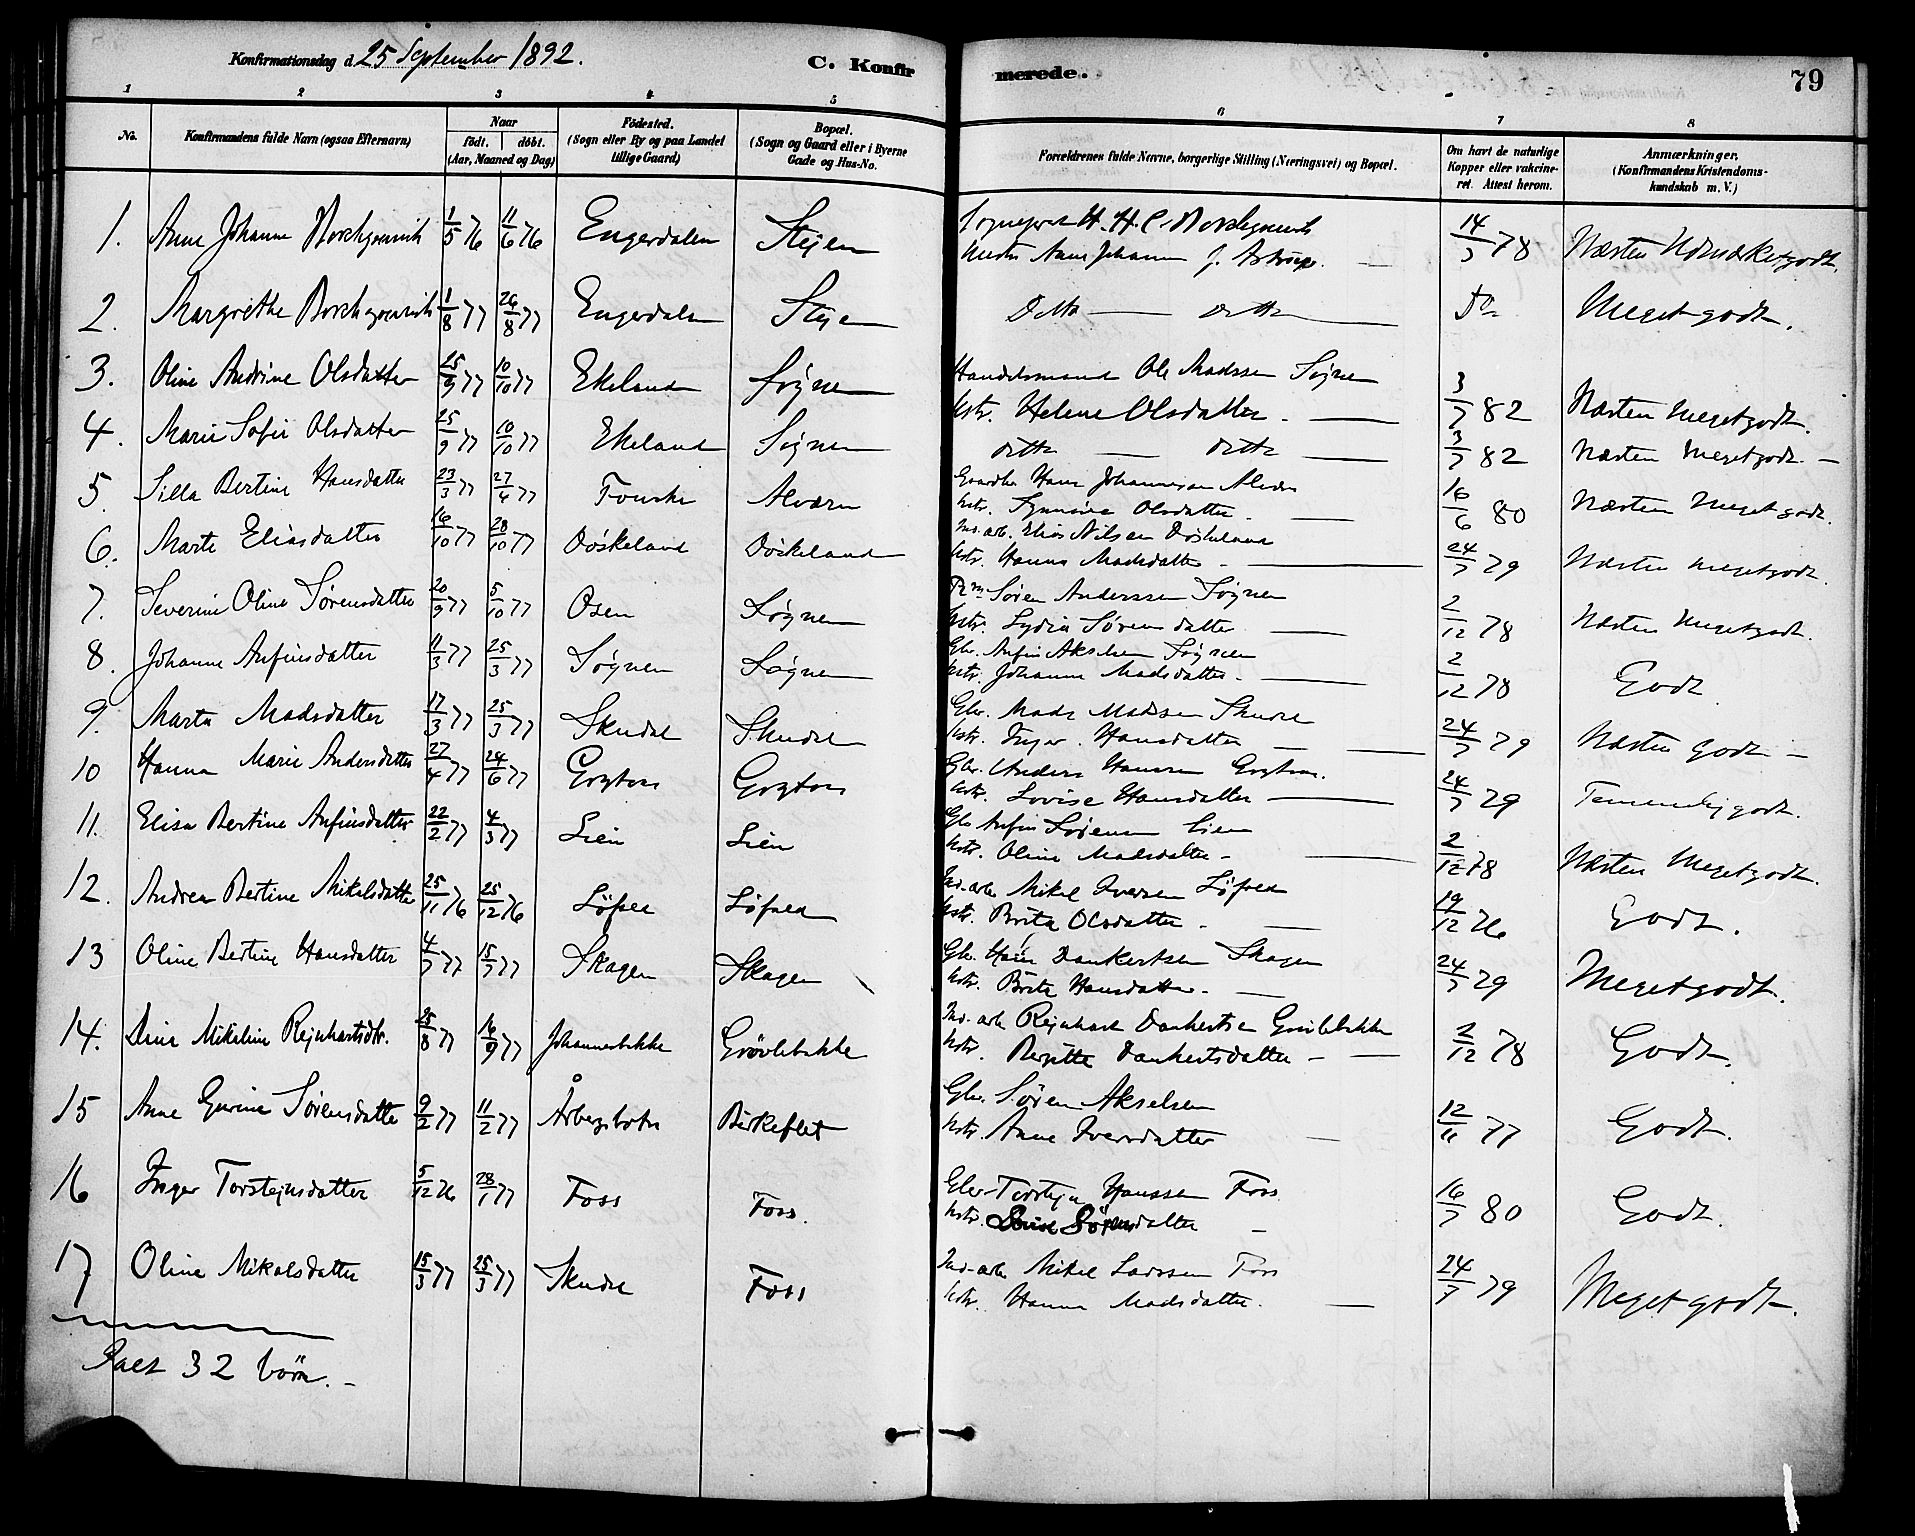 Konfirmationsdag d. 25 September 1892.
C. Konfirmerede.
79
1 2 3 4 5 6 7 8
No.
Konfirmandens fulde Navn (ogsaa Efternavn)
Naar
födt. döbt.
(Aar, Maaned og Dag)
Födested.
(Sogn eller By og paa Landet
tillige Gaard)
Bopæl.
(Sogn og Gaard eller i Byerne
Gade og Hus-No.
Forældrenes fulde Navne, borgerlige Stilling (Næringsvei) og Bopæl.
Om havt de naturlige
Kopper eller vakcine-
ret. Attest herom.
Anmærkninger.
(Konfirmandens Kristendoms-
kundskab m. V.)
1. Anne Johanne Borchgrevink 1/5 76 11/6 76 Engerdalen Stejen Sognepræst H. H. C. Borchgrevink 14/7 78 Næsten Udmærketgodt.
Hustru Anne Johanne f. Astrup. —
2. Margrethe Borchgrevink 1/8 77 26/8 77 Engerdalen Steje Ditto — ditto — Do Megetgodt.
3. Oline Andrine Olsdatter 25/9 77 10/10 77 Ekeland Søgnen Handelsmand Ole Madssen Søgnen
Hstr. Helene Olsdatter. — 3/7 82 Næsten Megetgodt.
4. Marie Sofie Olsdatter 25/9 77 10/10 77 Ekeland Søgnen ditto — ditto — 3/7 82 Næsten Megetgodt. —
5. Silla Bertine Hansdatter 23/3 77 27/4 77 Alværn Gaardbr Hans Johannesen
Hstr. Olsdatter. — 16/6 80 Næsten Megetgodt.
6. Marte Eliasdatter 16/10 77 28/10 77 Döskeland Döskeland Ind. arb. Elias Nilsen Döskeland
Hstr. Hanna Madsdatter. — 24/7 79 Næsten Megetgodt.
7. Severine Oline Sørensdatter 20/9 77 5/10 77 Osen Søgnen Søren Anderssen Søgnen
Hstr. Lydia Sørensdatter — 2/12 78 Næsten Megetgodt.
8. Johanne Anfinsdatter 11/3 77 25/3 77 Søgnen Søgnen Gbr. Anfin Akselsen Søgnen
Hstr. Johanne Madsdatter. — 2/12 78 Godt
9. Marta Madsdatter 17/3 77 25/3 77 Skudal Skudal Gbr. Mads Madssen Skudal
Hstr. Inger Hansdatter — 24/7 79 Næsten godt —
10 Hanna Marie Andersdatter 27/4 77 24/6 77 Gbr. Anders Hanssen
Hstr. Lovise Hansdatter — 24/7 79 Temmeligodt.
11. Elisa Bertine Anfinsdatter 22/2 77 4/3 77 Lien Lien Gbr Anfin Sørensen Lien
Hstr. Oline Madsdatter — 2/12 78 Næsten Megetgodt.
12. Andrea Bertine Mikalsdatter 25/11 76 25/12 76 Ind. arb. Mikel Iversen
Hstr. Brita Olsdatter. — 19/12 76 Godt.
13 Oline Bertine Hansdatter 4/7 77 15/7 77 Skagen Skagen Gbr. Hans Dankertsen Skagen
Hstr. Brita Hansdatter. — 24/7 79 Megetgodt.
14. Mikaline Rejnhartsdtr. 25/8 77 16/9 77 Johannesbakke Grøvlebakke Ind. arb Rejnhart Dankertsen Grøvlebakke
Hstr. Birgitte Dankertsdatter — 2/12 78 Godt.
15 Anne Gurine Sørensdatter 9/2 77 11/2 77 Årbergsbotn Birkeflet Gbr. Søren Akselsen
Hstr. Anne Iversdatter — 12/11 77 Godt.
16 Inger Torstejnsdatter 5/12 76 28/1 77 Foss Foss. Gbr. Torstejn Hanssen Foss.
Hstr. Sörensdatter — 16/7 80 Godt.
17 Oline Mikalsdatter 15/3 77 25/3 77 Skudal Foss Ind. arb. Mikel Larssen Foss
Hstr. Hanna Madsdatter. — 24/7 79 Megetgodt.
Ialt 32 börn. —